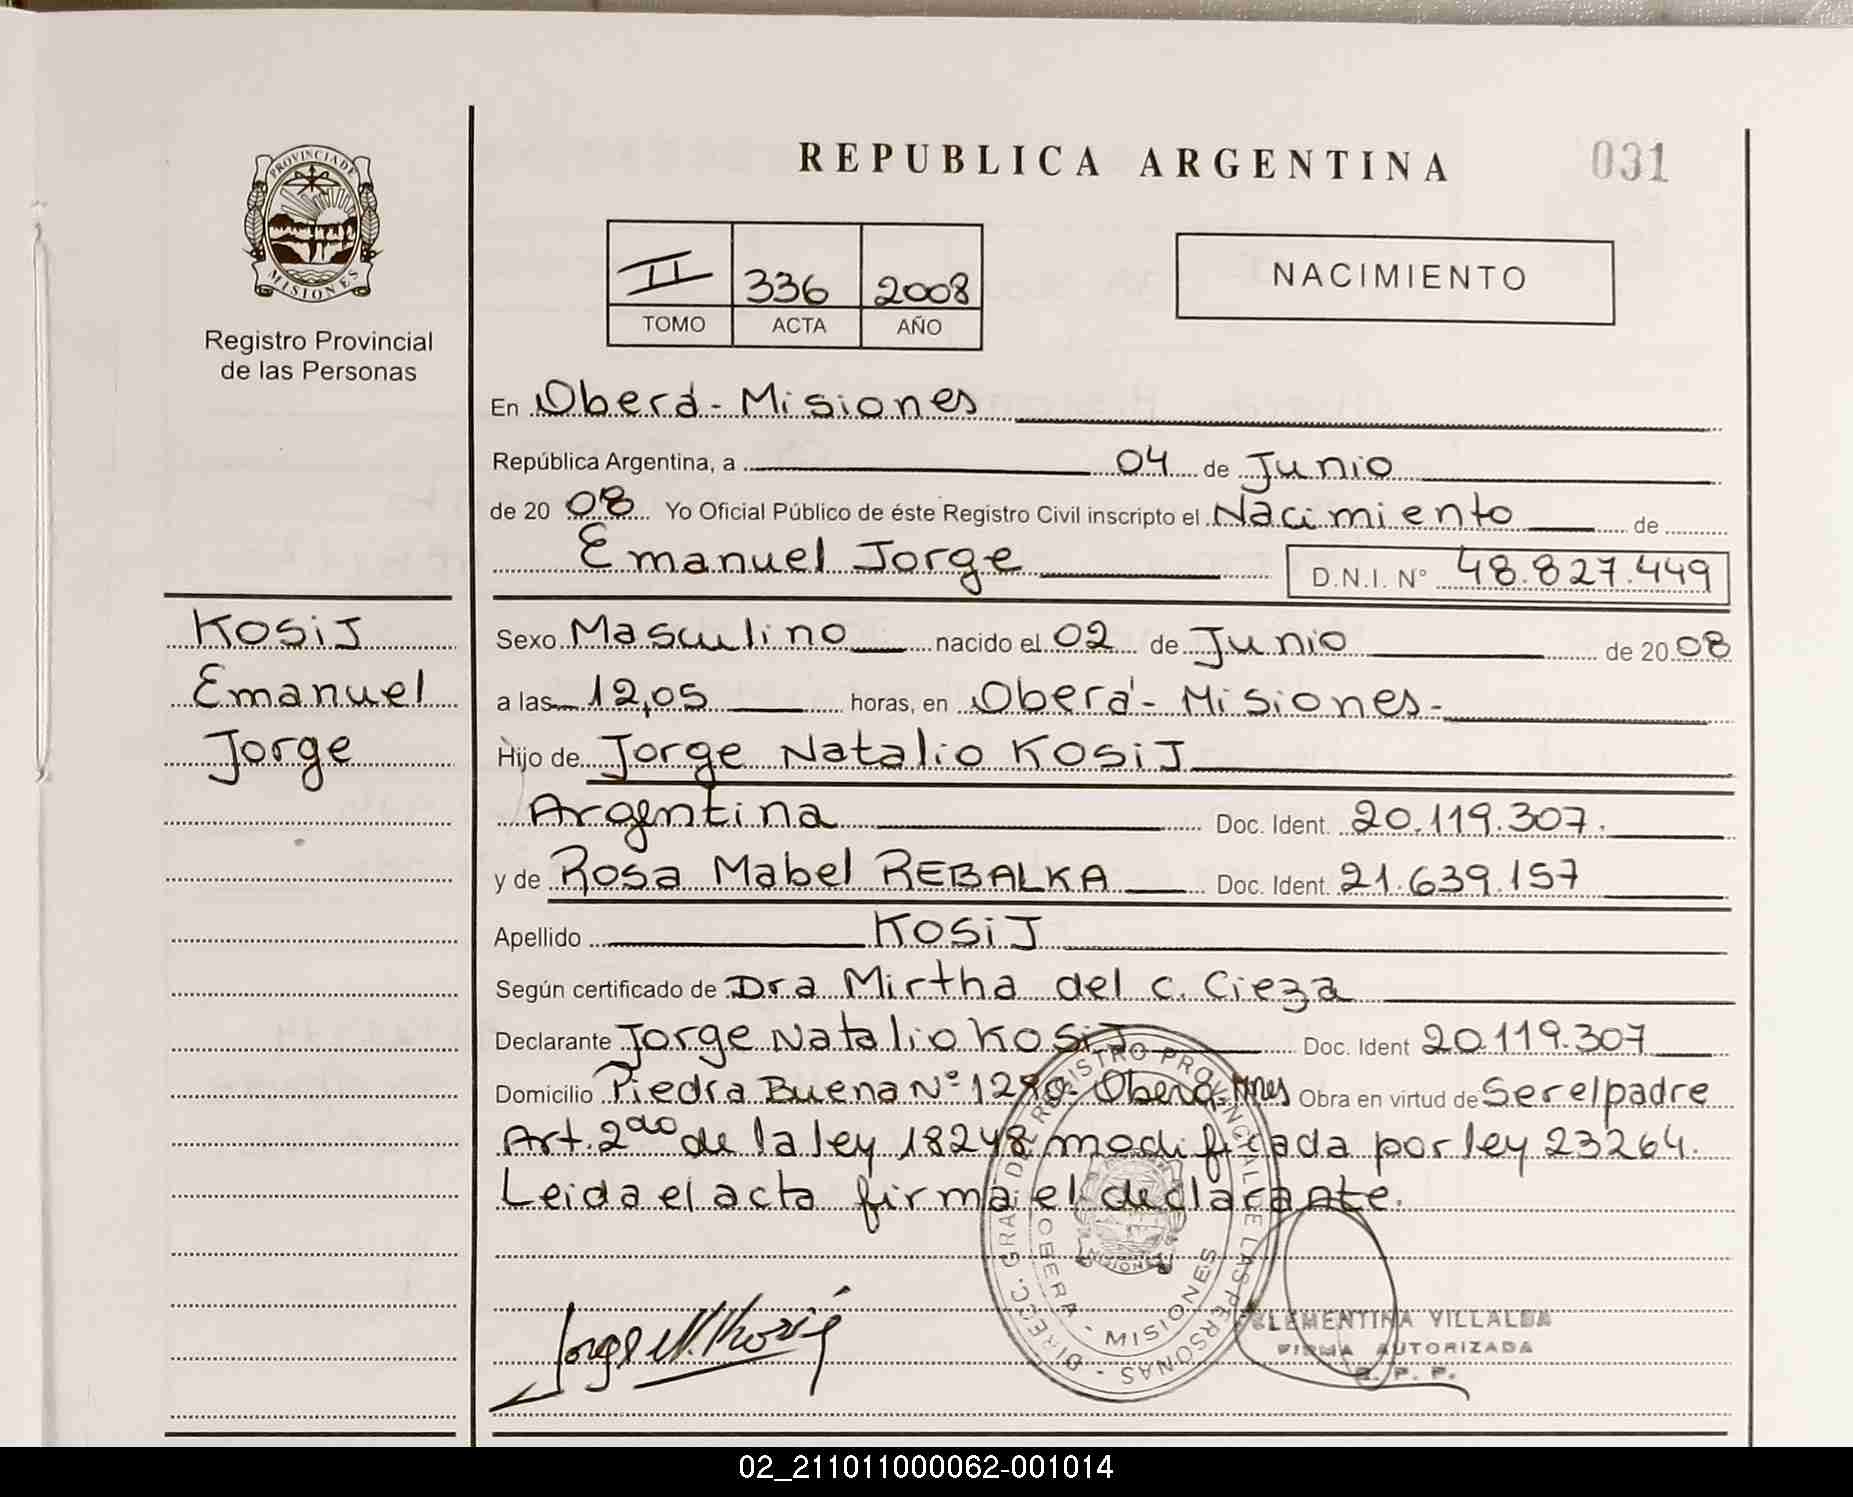 REPUBLICA ARGENTINA
031
PROVINCIA DE
MISIONES
Registro Provincial
de las Personas
II 336 2008
TOMO ACTA AÑO
NACIMIENTO
En Oberá - Misiones
República Argentina, a 04 de Junio
de 20 08 Yo Oficial Público de éste Registro Civil inscripto el Nacimiento de
Emanuel Jorge D.N.I. N° 48.827.449
Kosij
Emanuel
Jorge
Sexo Masculino nacido el 02 de Junio de 20 08
a las 12,05 horas, en Oberá - Misiones -
Hijo de Jorge Natalio Kosij
Argentina Doc. Ident. 20.119.307.
y de Rosa Mabel REBALKA Doc. Ident. 21.639.157
Apellido Kosij
Según certificado de Dra Mirtha del C. Cieza
Declarante Jorge Natalio Kosij Doc. Ident 20.119.307
Domicilio Piedra Buena N° Oberá - Mnes Obra en virtud de Ser el padre
Art. 2do de la ley 18248 modificada por ley 23264.
Leida el acta firma el declarante.
DIRECC. GRAL DEL REGISTRO PROVINCIAL DE LAS PERSONAS
OBERA - MISIONES
MISIONES
Jorge N. Kosij
CLEMENTINA VILLALBA
FIRMA AUTORIZADA
R. P. P.
02_211011000062-001014